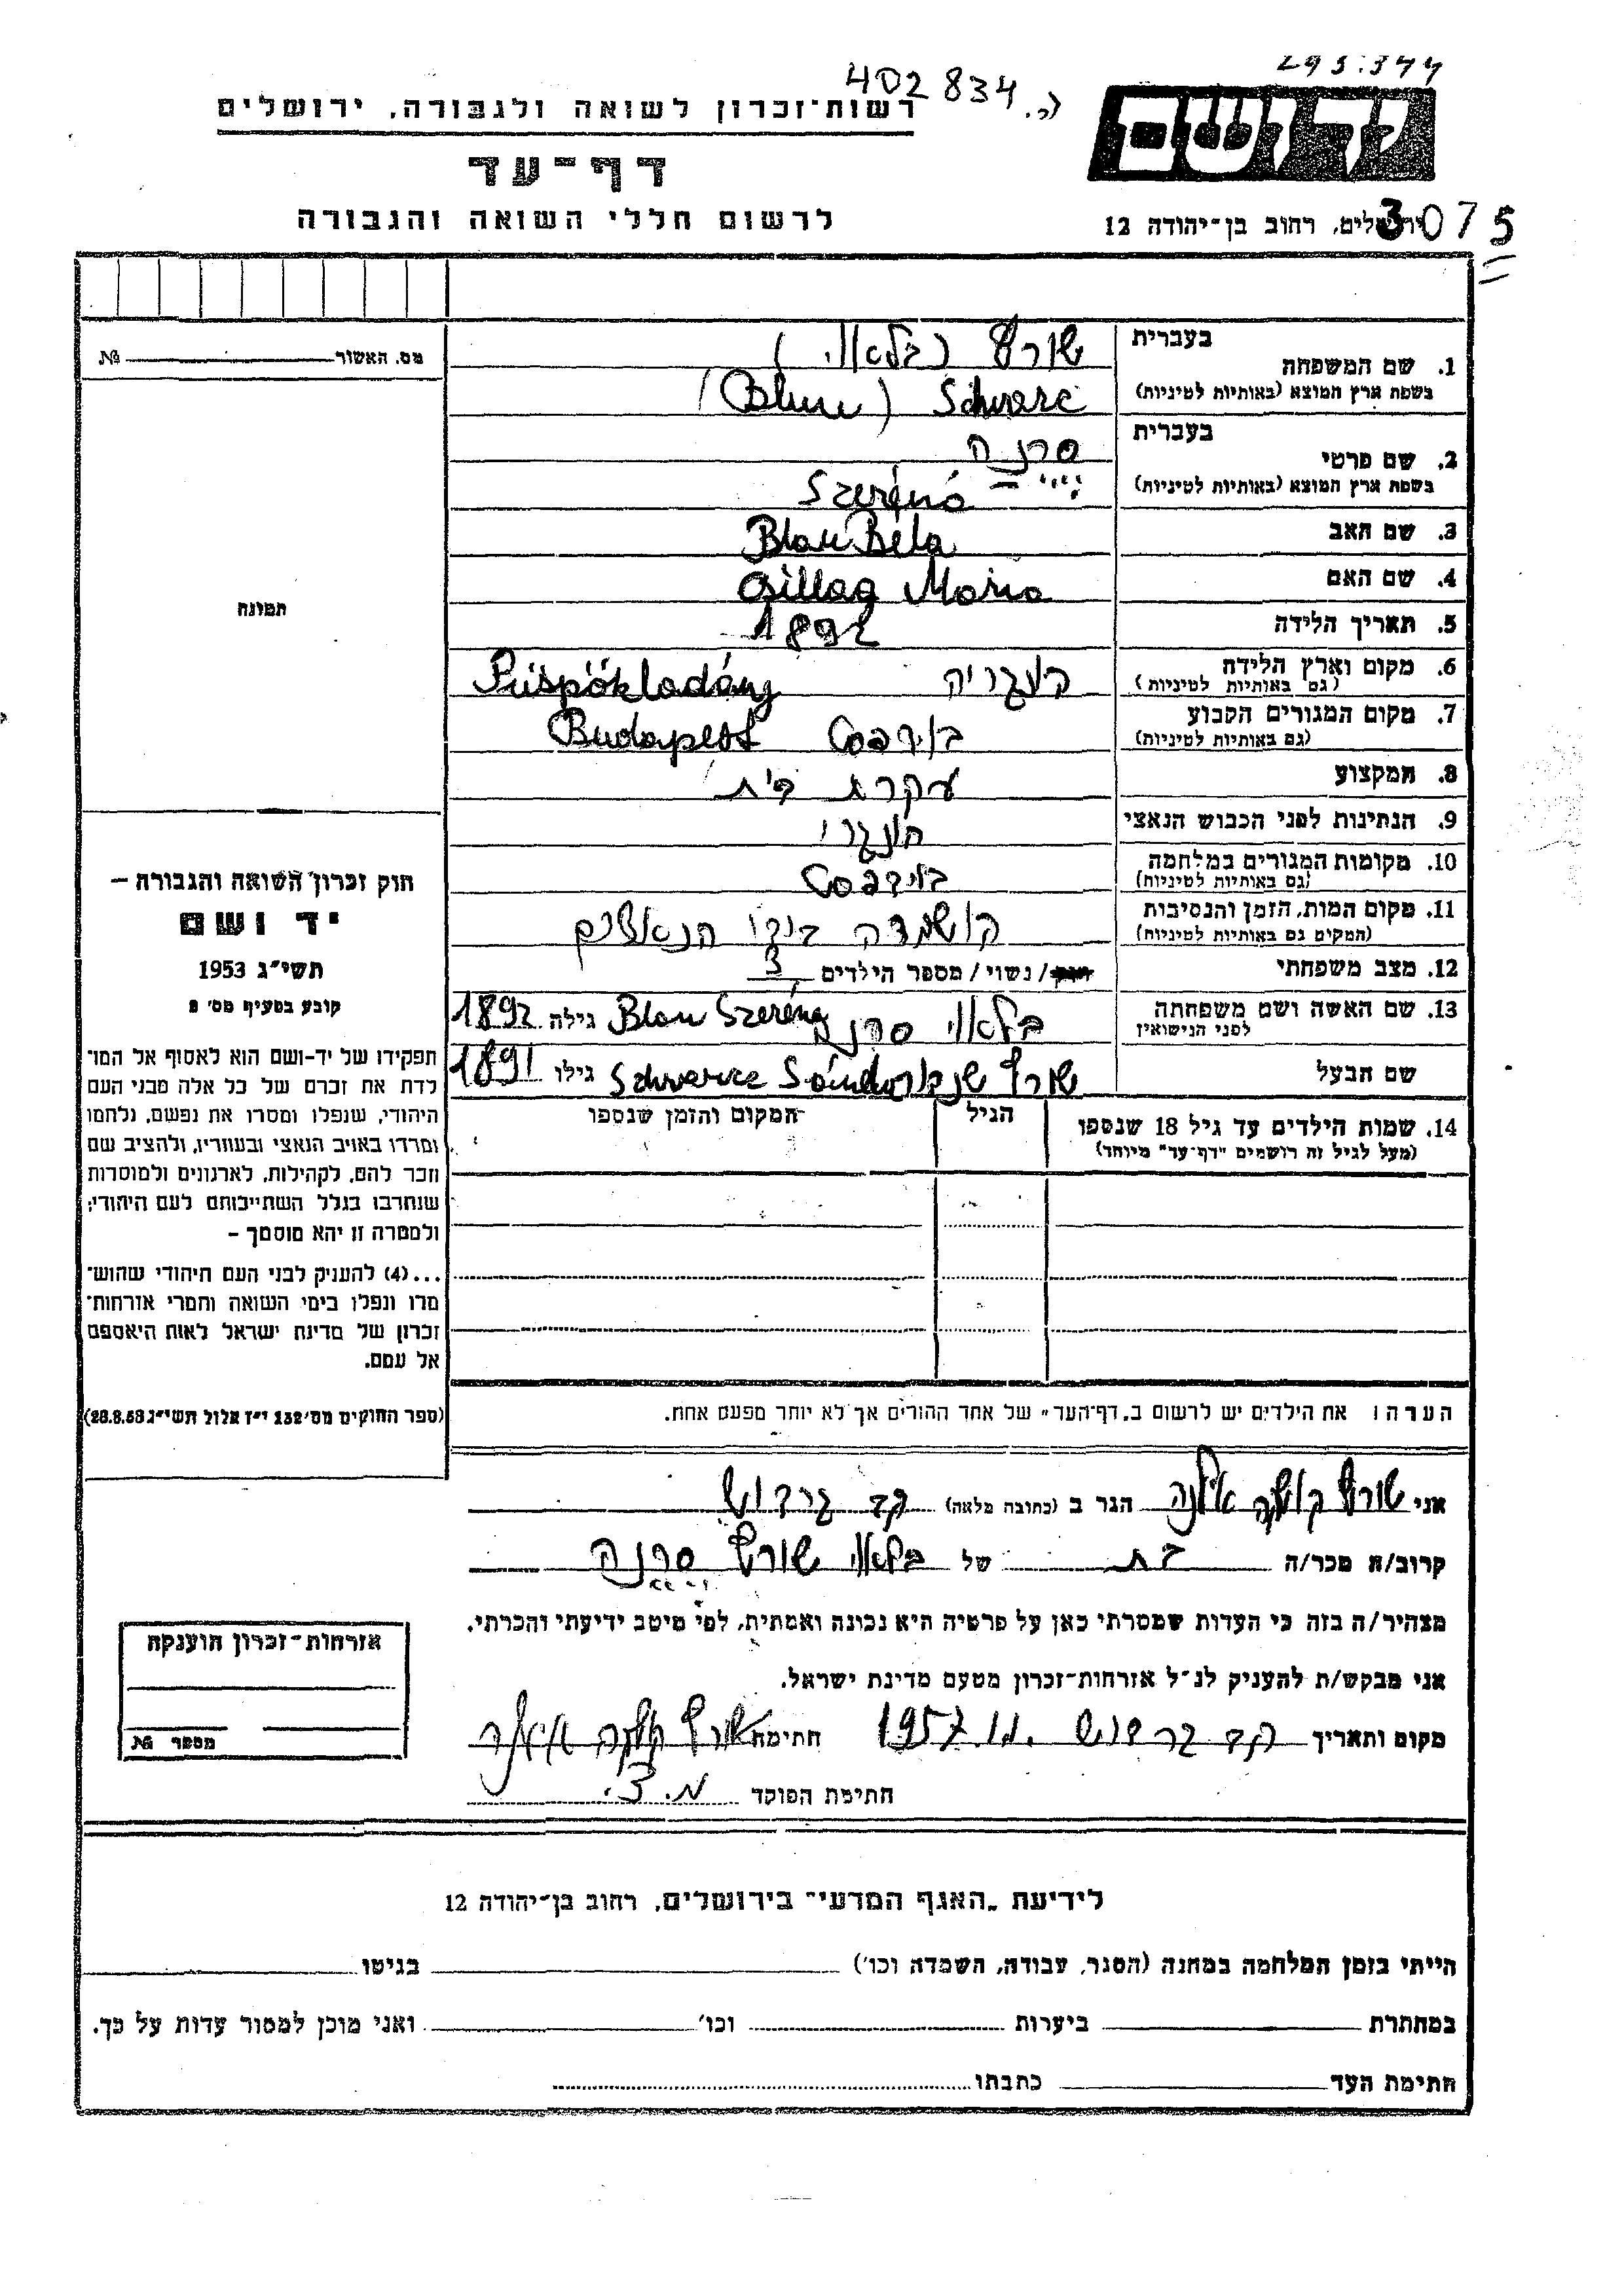 295.344
402 834
רשות־זכרון לשואה ולגבורה, ירושלים
ידושם
דף־עד
לרשום חללי השואה והגבורה
ירושלים, רחוב בן־יהודה 12
3075
מס. האשור № 
1. שם המשפחה בעברית שורץ (בלאוי)
בשפת ארץ המוצא (באותיות לטיניות) Schwarc (Blau)
2. שם פרטי בעברית סרנה
בשפת ארץ המוצא (באותיות לטיניות) Szeréna
3. שם האב Blau Béla
4. שם האם Csillag Maria
5. תאריך הלידה 1892
6. מקום וארץ הלידה הונגריה Püspökladány
(גם באותיות לטיניות)
7. מקום המגורים הקבוע בודפסט Budapest
(גם באותיות לטיניות)
8. המקצוע עקרת בית
9. הנתינות לפני הכבוש הנאצי הונגרי
10. מקומות המגורים במלחמה בודפסט
(גם באותיות לטיניות)
11. מקום המות, הזמן והנסיבות הושמדה בידי הנאצים
(המקום גם באותיות לטיניות)
12. מצב משפחתי רווק/נשוי/מספר הילדים 3
13. שם האשה ושם משפחתה בלאוי סרנה Blau Szeréna גילה 1892
לפני הנישואין
שם הבעל שורץ שנדור Schwarcz Sándor גילו 1891
14. שמות הילדים עד גיל 18 שנספו הגיל המקום והזמן שנספו
(מעל לגיל זה רושמים "דף־עד" מיוחד)
הערה: את הילדים יש לרשום ב„דף־העד" של אחד ההורים אך לא יותר מפעם אחת.
תמונה
חוק זכרון השואה והגבורה —
יד ושם
תשי"ג 1953
קובע בסעיף מס' 2
תפקידו של יד־ושם הוא לאסוף אל המו־
לדת את זכרם של כל אלה מבני העם
היהודי, שנפלו ומסרו את נפשם, נלחמו
ומרדו באויב הנאצי ובעוזריו, ולהציב שם
וזכר להם, לקהילות, לארגונים ולמוסדות
שנחרבו בגלל השתייכותם לעם היהודי;
ולמטרה זו יהא מוסמך —
...(4) להעניק לבני העם היהודי שהוש־
מדו ונפלו בימי השואה והמרי אזרחות־
זכרון של מדינת ישראל לאות היאספם
אל עמם.
(ספר החוקים מס' 132 י"ז אלול תשי"ג 28.8.53)
אני שורץ אילנה הגר ב (כתובה מלאה)
קרוב/ה מכר/ה בת של בלאוי שורץ סרנה
מצהיר/ה בזה כי העדות שמסרתי כאן על פרטיה היא נכונה ואמתית, לפי מיטב ידיעתי והכרתי.
אני מבקש/ת להעניק לנ"ל אזרחות־זכרון מטעם מדינת ישראל.
מקום ותאריך 1957 חתימה שורץ
חתימת הפוקד
אזרחות־זכרון הוענקה
מספר №
לידיעת „האגף המדעי" בירושלים, רחוב בן־יהודה 12
הייתי בזמן המלחמה במחנה (הסגר, עבודה, השמדה וכו') בגיטו
במחתרת ביערות וכו' ואני מוכן למסור עדות על כך.
חתימת העד כתבתו